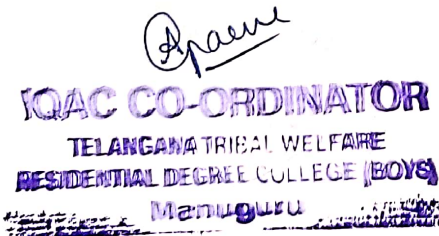 IQAC CO-ORDINATOR
TELANGANA TRIBAL WELFARE
RESIDENTIAL DEGREE COLLEGE (BOYS)
Manuguru